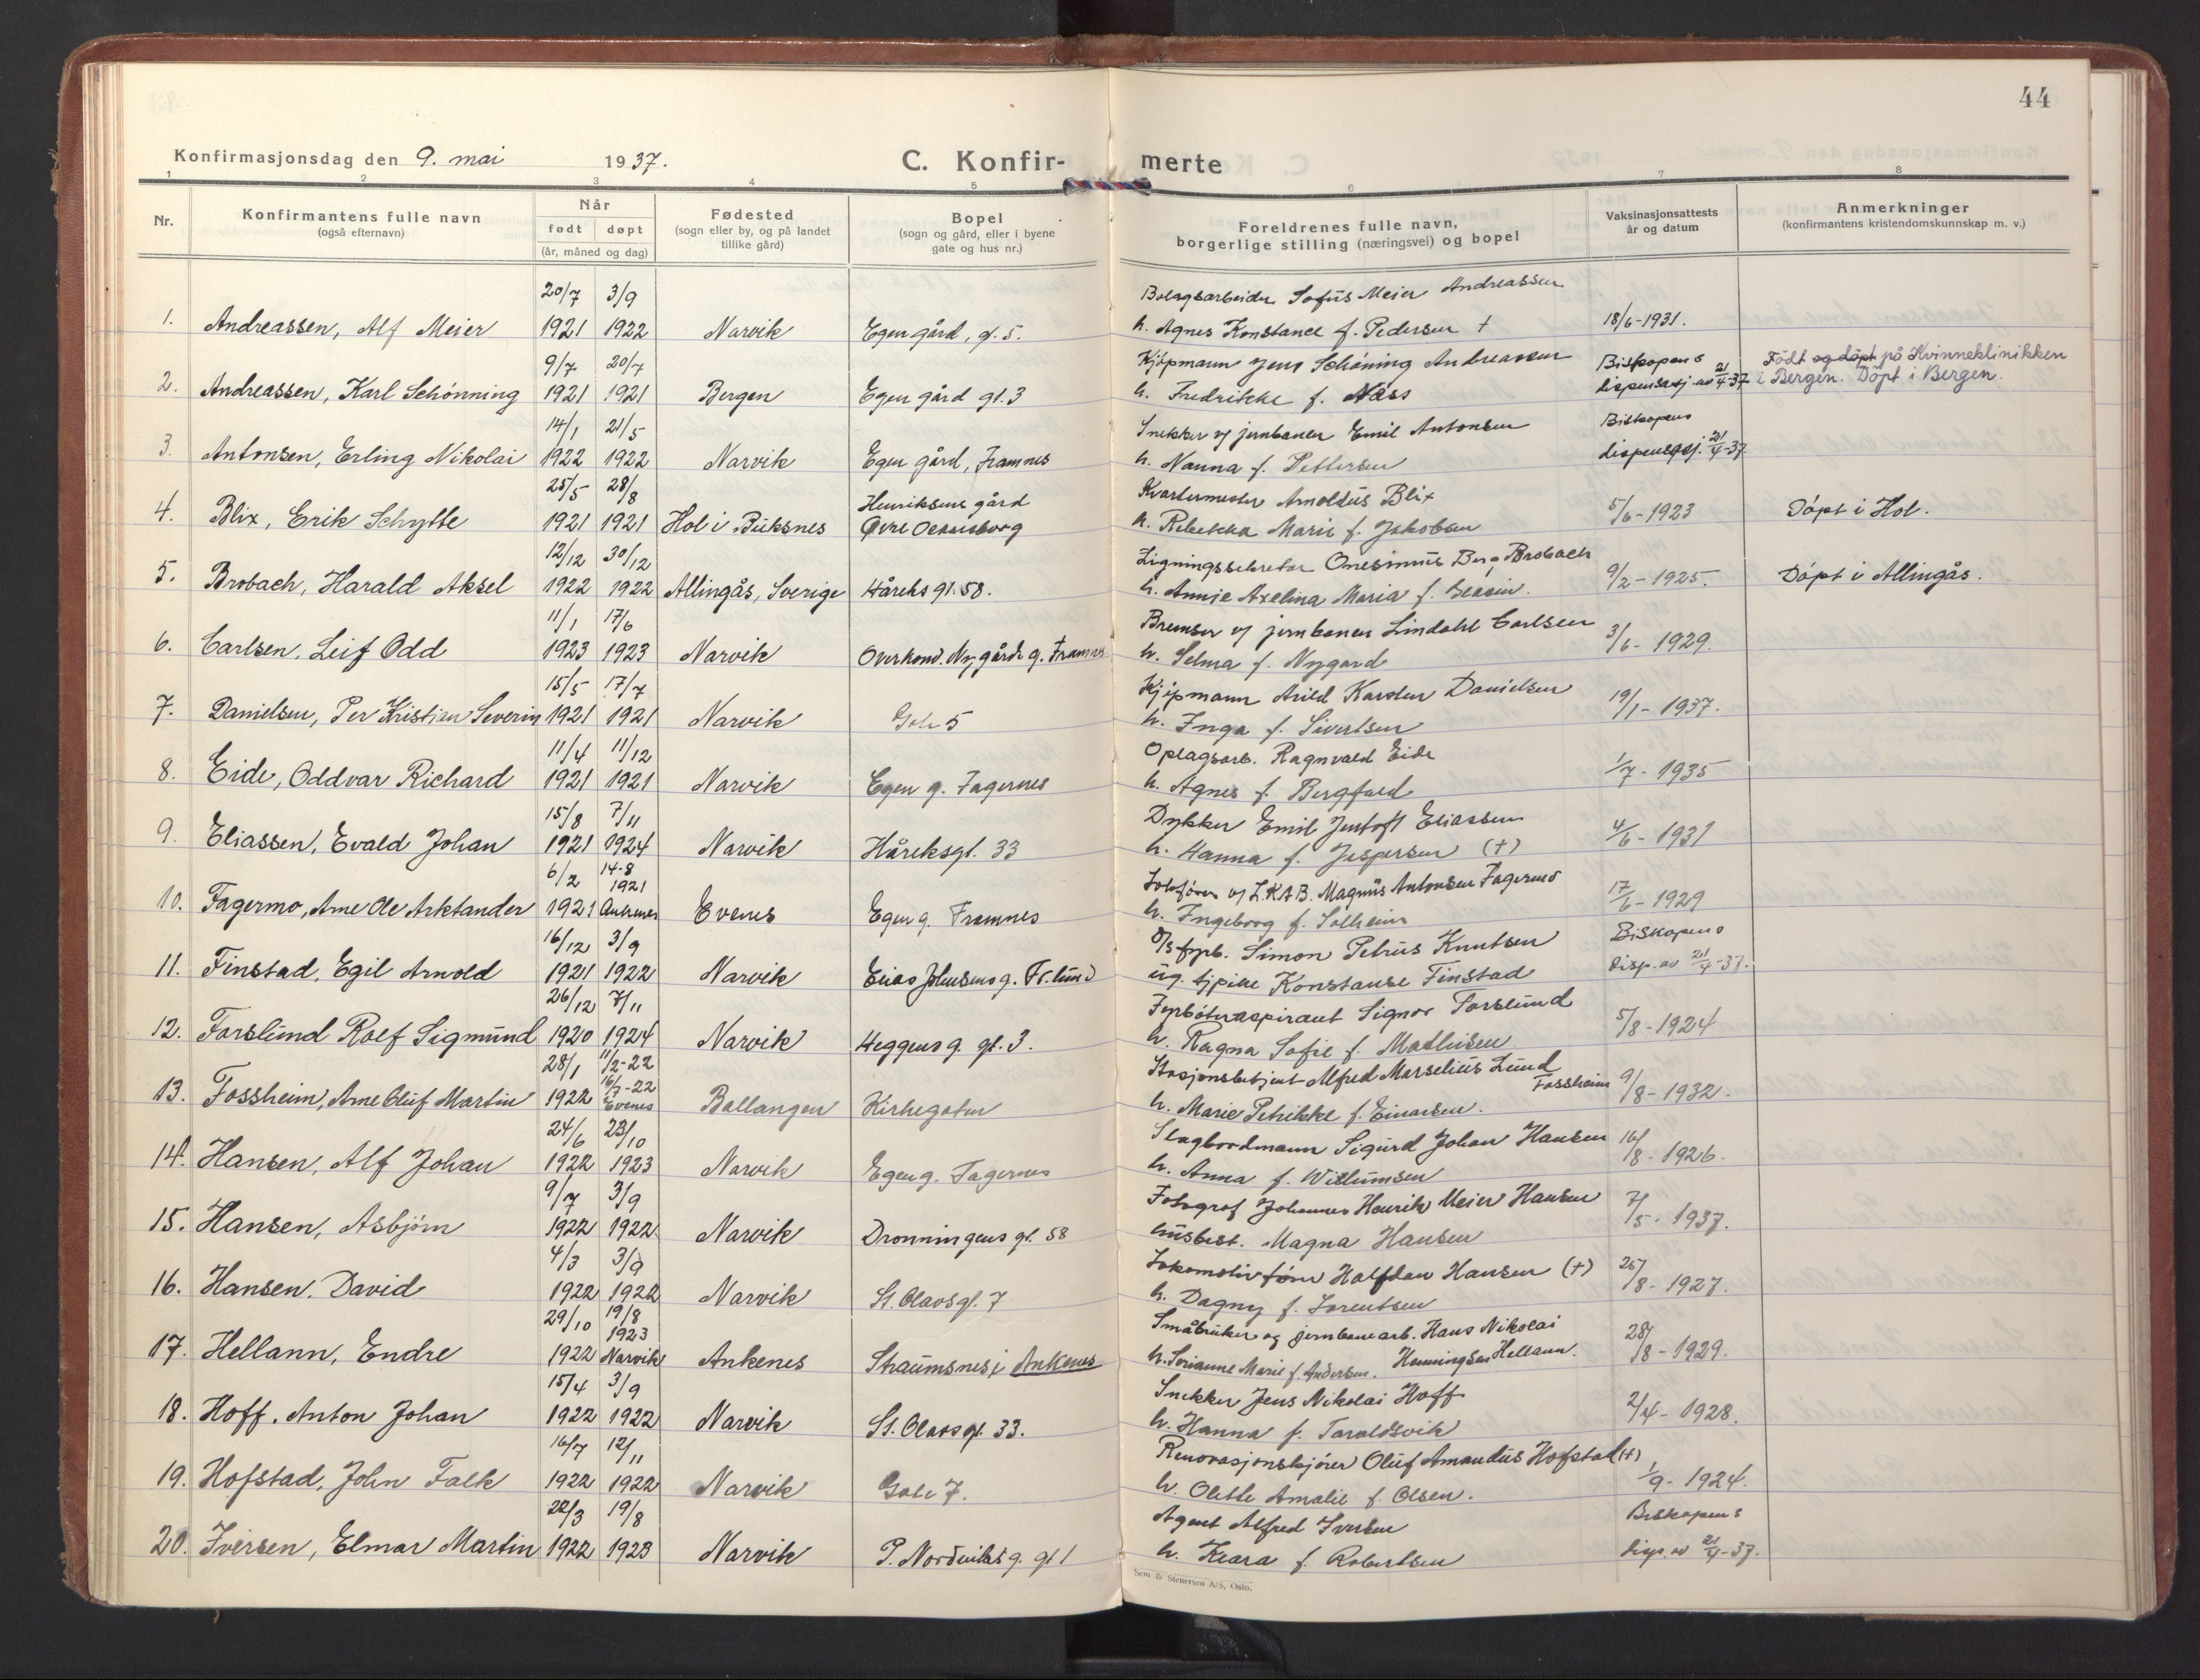 44
Konfirmasjonsdag den 9. mai 1937.
C. Konfir- merte
1 2 3 4 5 6 7 8
Nr.
Konfirmantens fulle navn
(også efternavn)
Når
født døpt
(år, måned og dag)
Fødested
(sogn eller by, og på landet
tillike gård)
Bopel
(sogn og gård, eller i byene
gate og hus nr.)
Foreldrenes fulle navn,
borgerlige stilling (næringsvei) og bopel
Vaksinasjonsattests
år og datum
Anmerkninger
(konfirmantens kristendomskunnskap m. v.)
20/7 3/9 Bolagsarbeider Sofus Meier Andreassen
1. Andreassen, Alf Meier 1921 1922 Narvik Egen gård, g. 5. h. Agnes Konstance f. Pedersen + 18/6-1931.
9/7 20/7 Kjøpmann Jens Schöning Andreassen Biskopens Født og døpt på Kvinneklinikken
2. Andreassen, Karl Schönning 1921 1921 Bergen Egen gård gt. 3 h. Fredrikke f. Næss dispensasj. av 21/4-37 i Bergen. Döpt i Bergen.
14/1 21/5 Snekker v/ jernbanen Emil Antonsen Biskopens
3. Antonsen, Erling Nikolai 1922 1922 Narvik Egen gård, Framnes h. Nanna f. Pettersen dispensasj. 21/4-37
25/5 28/8 Henriksens gård Kvartermester Arnoldus Blix
4. Blix, Erik Schytte 1921 1921 Hol i Buksnes Øvre Oscarsborg h. Rebekka Marie f. Jakobsen 5/6-1923 Döpt i Hol.
12/12 30/12 Ligningssekretær Onesimus Berg Brobach
5. Brobach, Harald Aksel 1922 1922 Allingås, Sverige Håreks gt. 58. h. Annie Axelina Maria f. 9/2-1925. Döpt i Allingås.
11/1 17/6 Bremser v/ jernbanen Lindahl Carlsen
6. Carlsen, Leif Odd 1923 1923 Narvik Overkond. Nygårds g. Framnes h. Selma f. Nygard 3/6-1929.
15/5 17/7 Kjöpmann Arild Karsten Danielsen
7. Danielsen, Per Kristian Severin 1921 1921 Narvik Gate 5 h. Inga f. Sivertsen 19/1-1937.
11/4 11/12 Oplagsarb. Ragnvald Eide
8. Eide, Oddvar Richard 1921 1921 Narvik Egen g. Fagernes h. Agnes f. Bergfald 1/7-1935
15/8 7/11 Dykker Emil Jentoft Eliassen
9. Eliassen, Evald Johan 1921 1924 Narvik Håreksgt. 33 h. Hanna f. Jespersen (+) 4/6-1931
6/2 14-8 1921 Lokfører v/ L.K.A.B. Magnus Antonsen Fagermo
10. Fagermo, Arne Ole Arktander 1921 Ankenes Evenes Egen g. Framnes h. Ingeborg f. Solheim 17/6-1929
16/12 3/9 Simon Petrus Knutsen Biskopens
11. Finstad, Egil Arnold 1921 1922 Narvik Elias Johnsens g. Fr.lund ug. pike Konstanse Finstad disp. av 21/4-37.
26/12 7/11 Fyrbøteraspirant Signor Forslund
12. Forslund Rolf Sigmund 1920 1924 Narvik Heggens g. gt. 3. h. Ragna Sofie f. Mathisen 5/8-1924
28/1 11/2-22 16/7-22 Stasjonsbetjent Alfred Marselius Lund
13. Fossheim, Arne Oluf Martin 1922 Evenes Ballangen Kirkegaten h. Marie Petrikke f. Einarsen. Fossheim 9/8-1932.
24/6 23/10 Slagbordmann Sigurd Johan Hansen
14. Hansen, Alf Johan 1922 1923 Narvik Egen g. Fagernes h. Anna f. Willumsen 16/8-1926.
9/7 3/9 Fotograf Johannes Henrik Meier Hansen
15. Hansen, Asbjørn 1922 1922 Narvik Dronningens gt. 58 husbest. Magna Hansen 7/5-1937.
4/3 3/9 Lokomotivfører Halfdan Hansen (+)
16. Hansen. David 1922 1922 Narvik St. Olavsgt. 7 h. Dagny f. Lorentsen 25/8-1927.
29/10 19/8 1923 Småbruker og jernbanearb. Hans Nikolai
17. Hellann, Endre 1922 Narvik Ankenes Straumsnes i Ankenes h. Sorianne Marie f. Andersen. Henningsen Hellann. 28/8-1929.
15/4 3/9 Snekker Jens Nikolai Hoff
18. Hoff. Anton Johan 1922 1922 Narvik St. Olavs gt. 33. h. Hanna f. Taraldsvik 2/4-1928.
16/7 12/11 Renovasjonskjører Oluf Amandus Hofstad (+)
19. Hofstad, John Falk 1922 1922 Narvik Gate 7. h. Olette Amalie f. Olsen. 1/9-1924.
22/3 19/8 Agent Alfred Iversen Biskopens
20. Iversen, Elmar Martin 1922 1923 Narvik P. Nordviks g. gt 1 h. Klara f. Robertsen disp. av 21/4-37.
Sem & Stenersen A/S, Oslo.